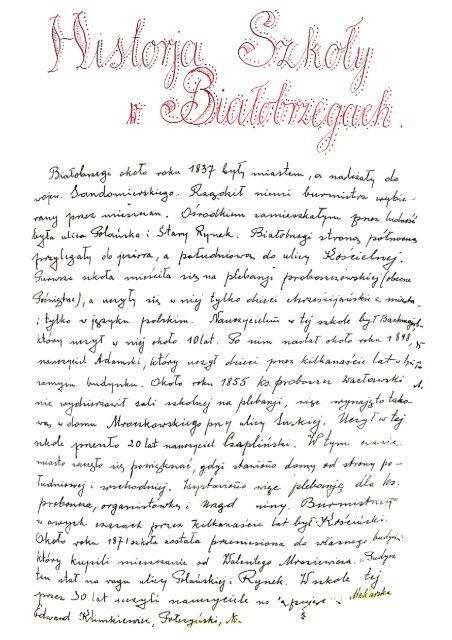 Historja Szkoły
w Białobrzegach.
Białobrzegi około roku 1837 były miastem, a należały do
wojew. Sandomierskiego. Rządził niemi burmistrz wybie-
rany przez mieszczan. Ośrodkiem zamieszkałym przez ludność
była ulica Polańska i Stary Rynek. Białobrzegi stroną północną
przylegały do jeziora, a południową do ulicy Kościelnej.
Pierwsza szkoła mieściła się na plebanji proboszczowskiej (obecnie
), a uczyły się w niej tylko dzieci chrześcijańskie z miasta
i tylko w języku polskim. Nauczycielem w tej szkole był
który uczył w niej około 10 lat. Po nim nastał około roku 1848,
nauczyciel Adamski, który uczył dzieci przez kilkanaście lat w tym
samym budynku. Około roku 1855 ks proboszcz Wacławski
nie wydzierżawił sali szkolnej na plebanji, więc wynajęto tako-
wą w domu Mroczkowskiego przy ulicy Suskiej. Uczył w tej
szkole przeszło 20 lat nauczyciel Czapliński. W tym czasie
miasto zaczęło się powiększać, gdyż stawiano domy od strony po-
łudniowej i wschodniej. Wystawiono więc plebanję dla ks.
proboszcza, organistówkę i Urząd gminy. Burmistrzem
w owych czasach przez kilkanaście lat był Kościński.
Około roku 1871 szkoła została przeniesiona do własnego budyn-
który kupili mieszczanie od Walentego Mroziewicza. Budynek
ten stał na rogu ulicy Polańskiej i Rynek. W szkole tej
przez 30 lat uczyli nauczyciele Makarska
Edward Klimkiewicz,